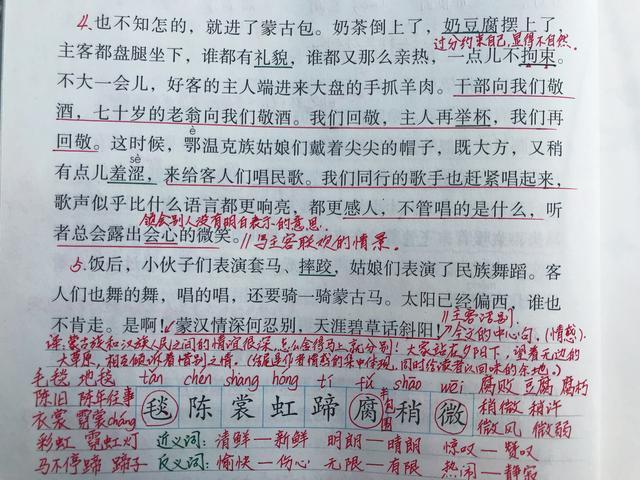 4.也不知怎的，就进了蒙古包。奶茶倒上了，奶豆腐摆上了，
过分约束自己，显得不自然。
主客都盘腿坐下，谁都有礼貌，谁都又那么亲热，一点儿不拘束。
不大一会儿，好客的主人端进来大盘的手抓羊肉。干部向我们敬
酒，七十岁的老翁向我们敬酒。我们回敬，主人再举杯，我们再
回敬。这时候，鄂温克族姑娘们戴着尖尖的帽子，既大方，又稍
è
有点儿羞涩，来给客人们唱民歌。我们同行的歌手也赶紧唱起来，
sè
歌声似乎比什么语言都更响亮，都更感人，不管唱的是什么，听
领会别人没有明白表示的意思。
者总会露出会心的微笑。//写主客联欢的情景。
5.饭后，小伙子们表演套马、摔跤，姑娘们表演了民族舞蹈。客
人们也舞的舞，唱的唱，还要骑一骑蒙古马。太阳已经偏西，谁也
不肯走。是啊！蒙汉情深何忍别，天涯碧草话斜阳！
//主客话别
全文的中心句。(情感)
译：蒙古族和汉族人民之间的情谊很深，怎么舍得马上就分别！大家站在夕阳下，望着无边的
大草原，相互倾诉着惜别之情。(结尾是作者情感的集中体现，同时给读者以回味的余地。)
毛毯 地毯 tǎn chén shang hóng tí fǔ shāo wēi 腐败 豆腐 腐朽
陈旧 陈年往事 毯 陈 裳 虹 蹄 腐 稍 微 稍微 稍许
半包围
衣裳 霓裳cháng 微风 微弱
彩虹 霓虹灯 近义词：清鲜—新鲜 明朗—晴朗 惊叹—赞叹
马不停蹄 蹄子 反义词：愉快—伤心 无限—有限 热闹—静寂